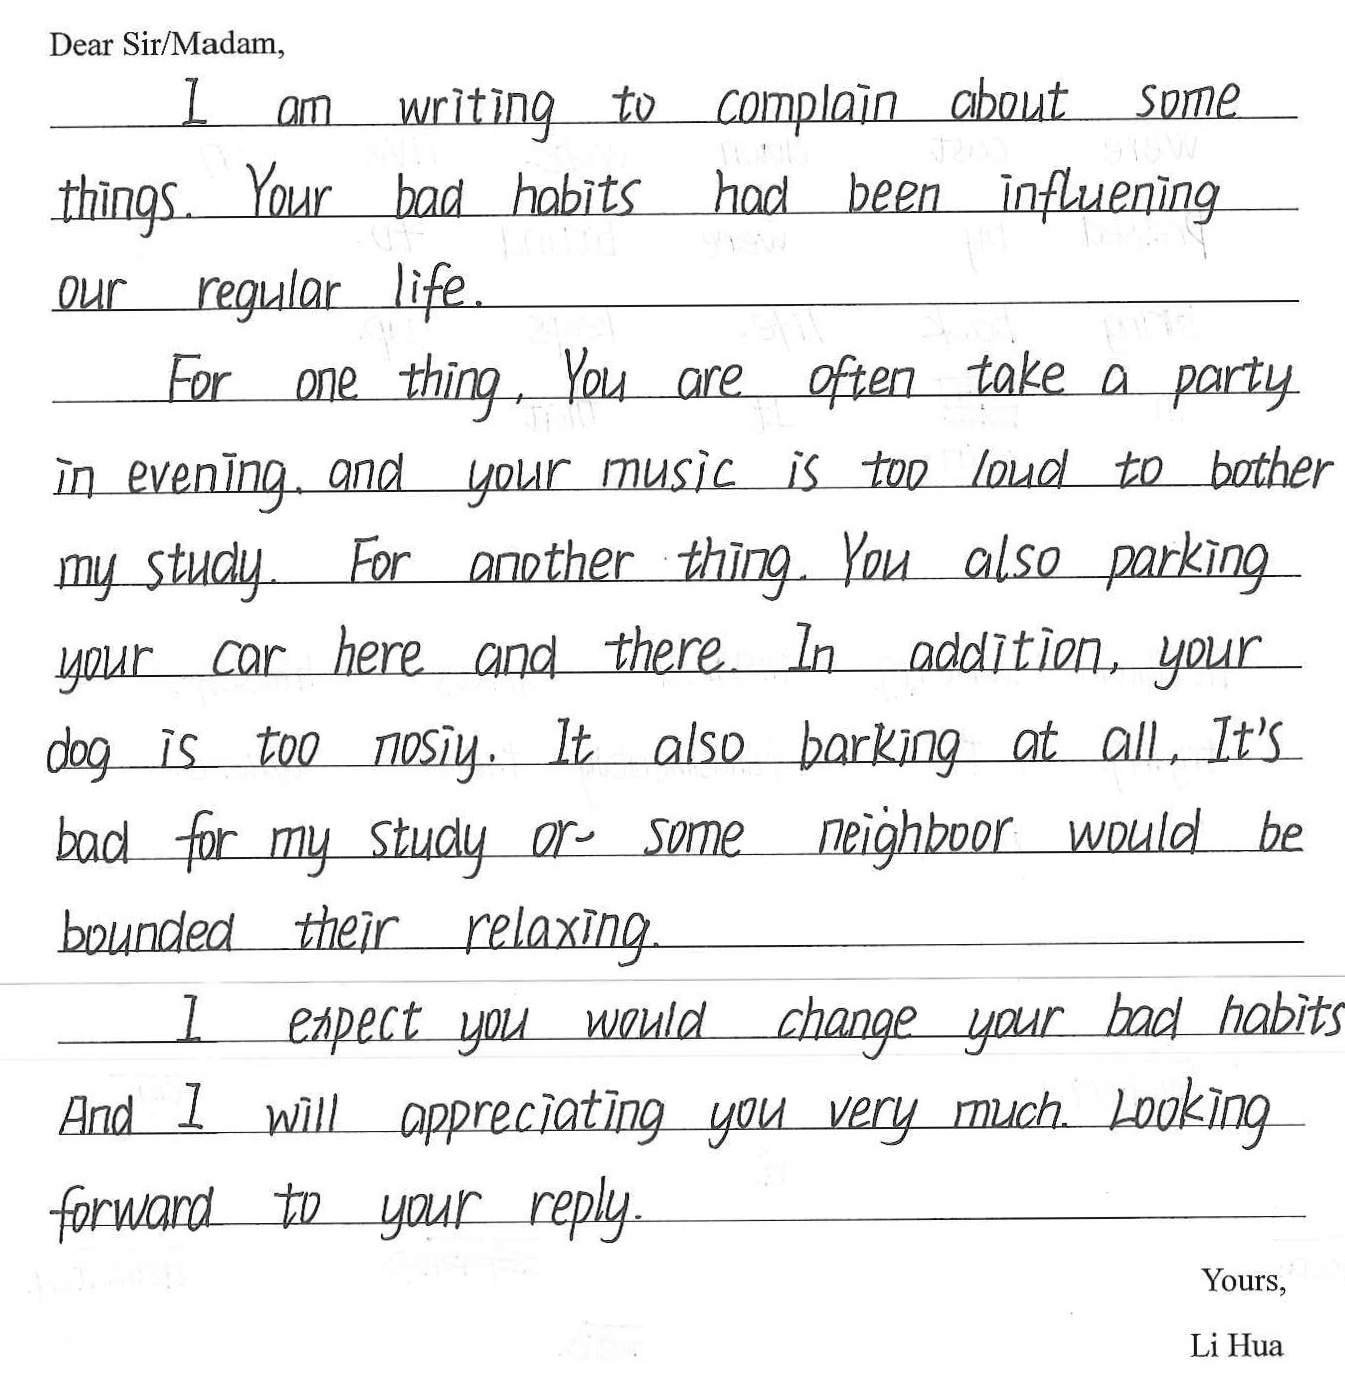 Dear Sir/Madam,
I am writing to complain about some
things. Your bad habits had been influening
our regular life.
For one thing, You are often take a party
in evening, and your music is too loud to bother
my study. For another thing. You also parking
your car here and there. In addition, your
dog is too nosiy. It also barking at all, It's
bad for my study or some neighboor would be
bounded their relaxing.
I expect you would change your bad habits
And I will appreciating you very much. Looking
forward to your reply.
Yours,
Li Hua